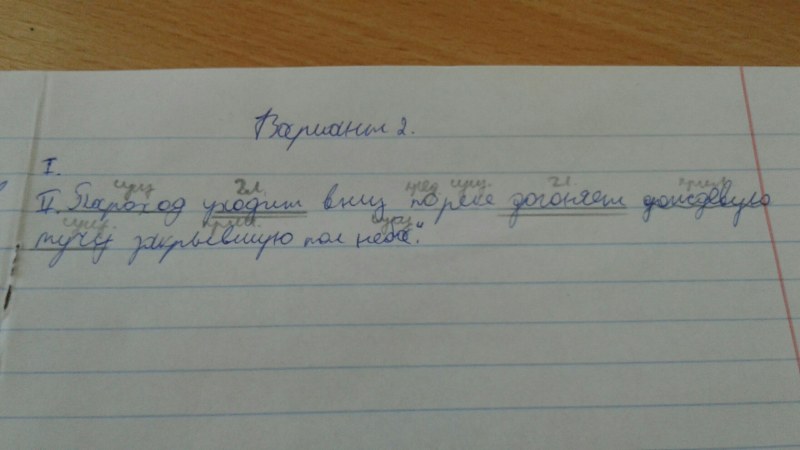 Вариант 2.
I.
сущ. гл. пред сущ. гл. прил.
II. Пароход уходит вниз по реке догоняет дождевую
сущ. прич. сущ
тучу закрывшую пол неба."